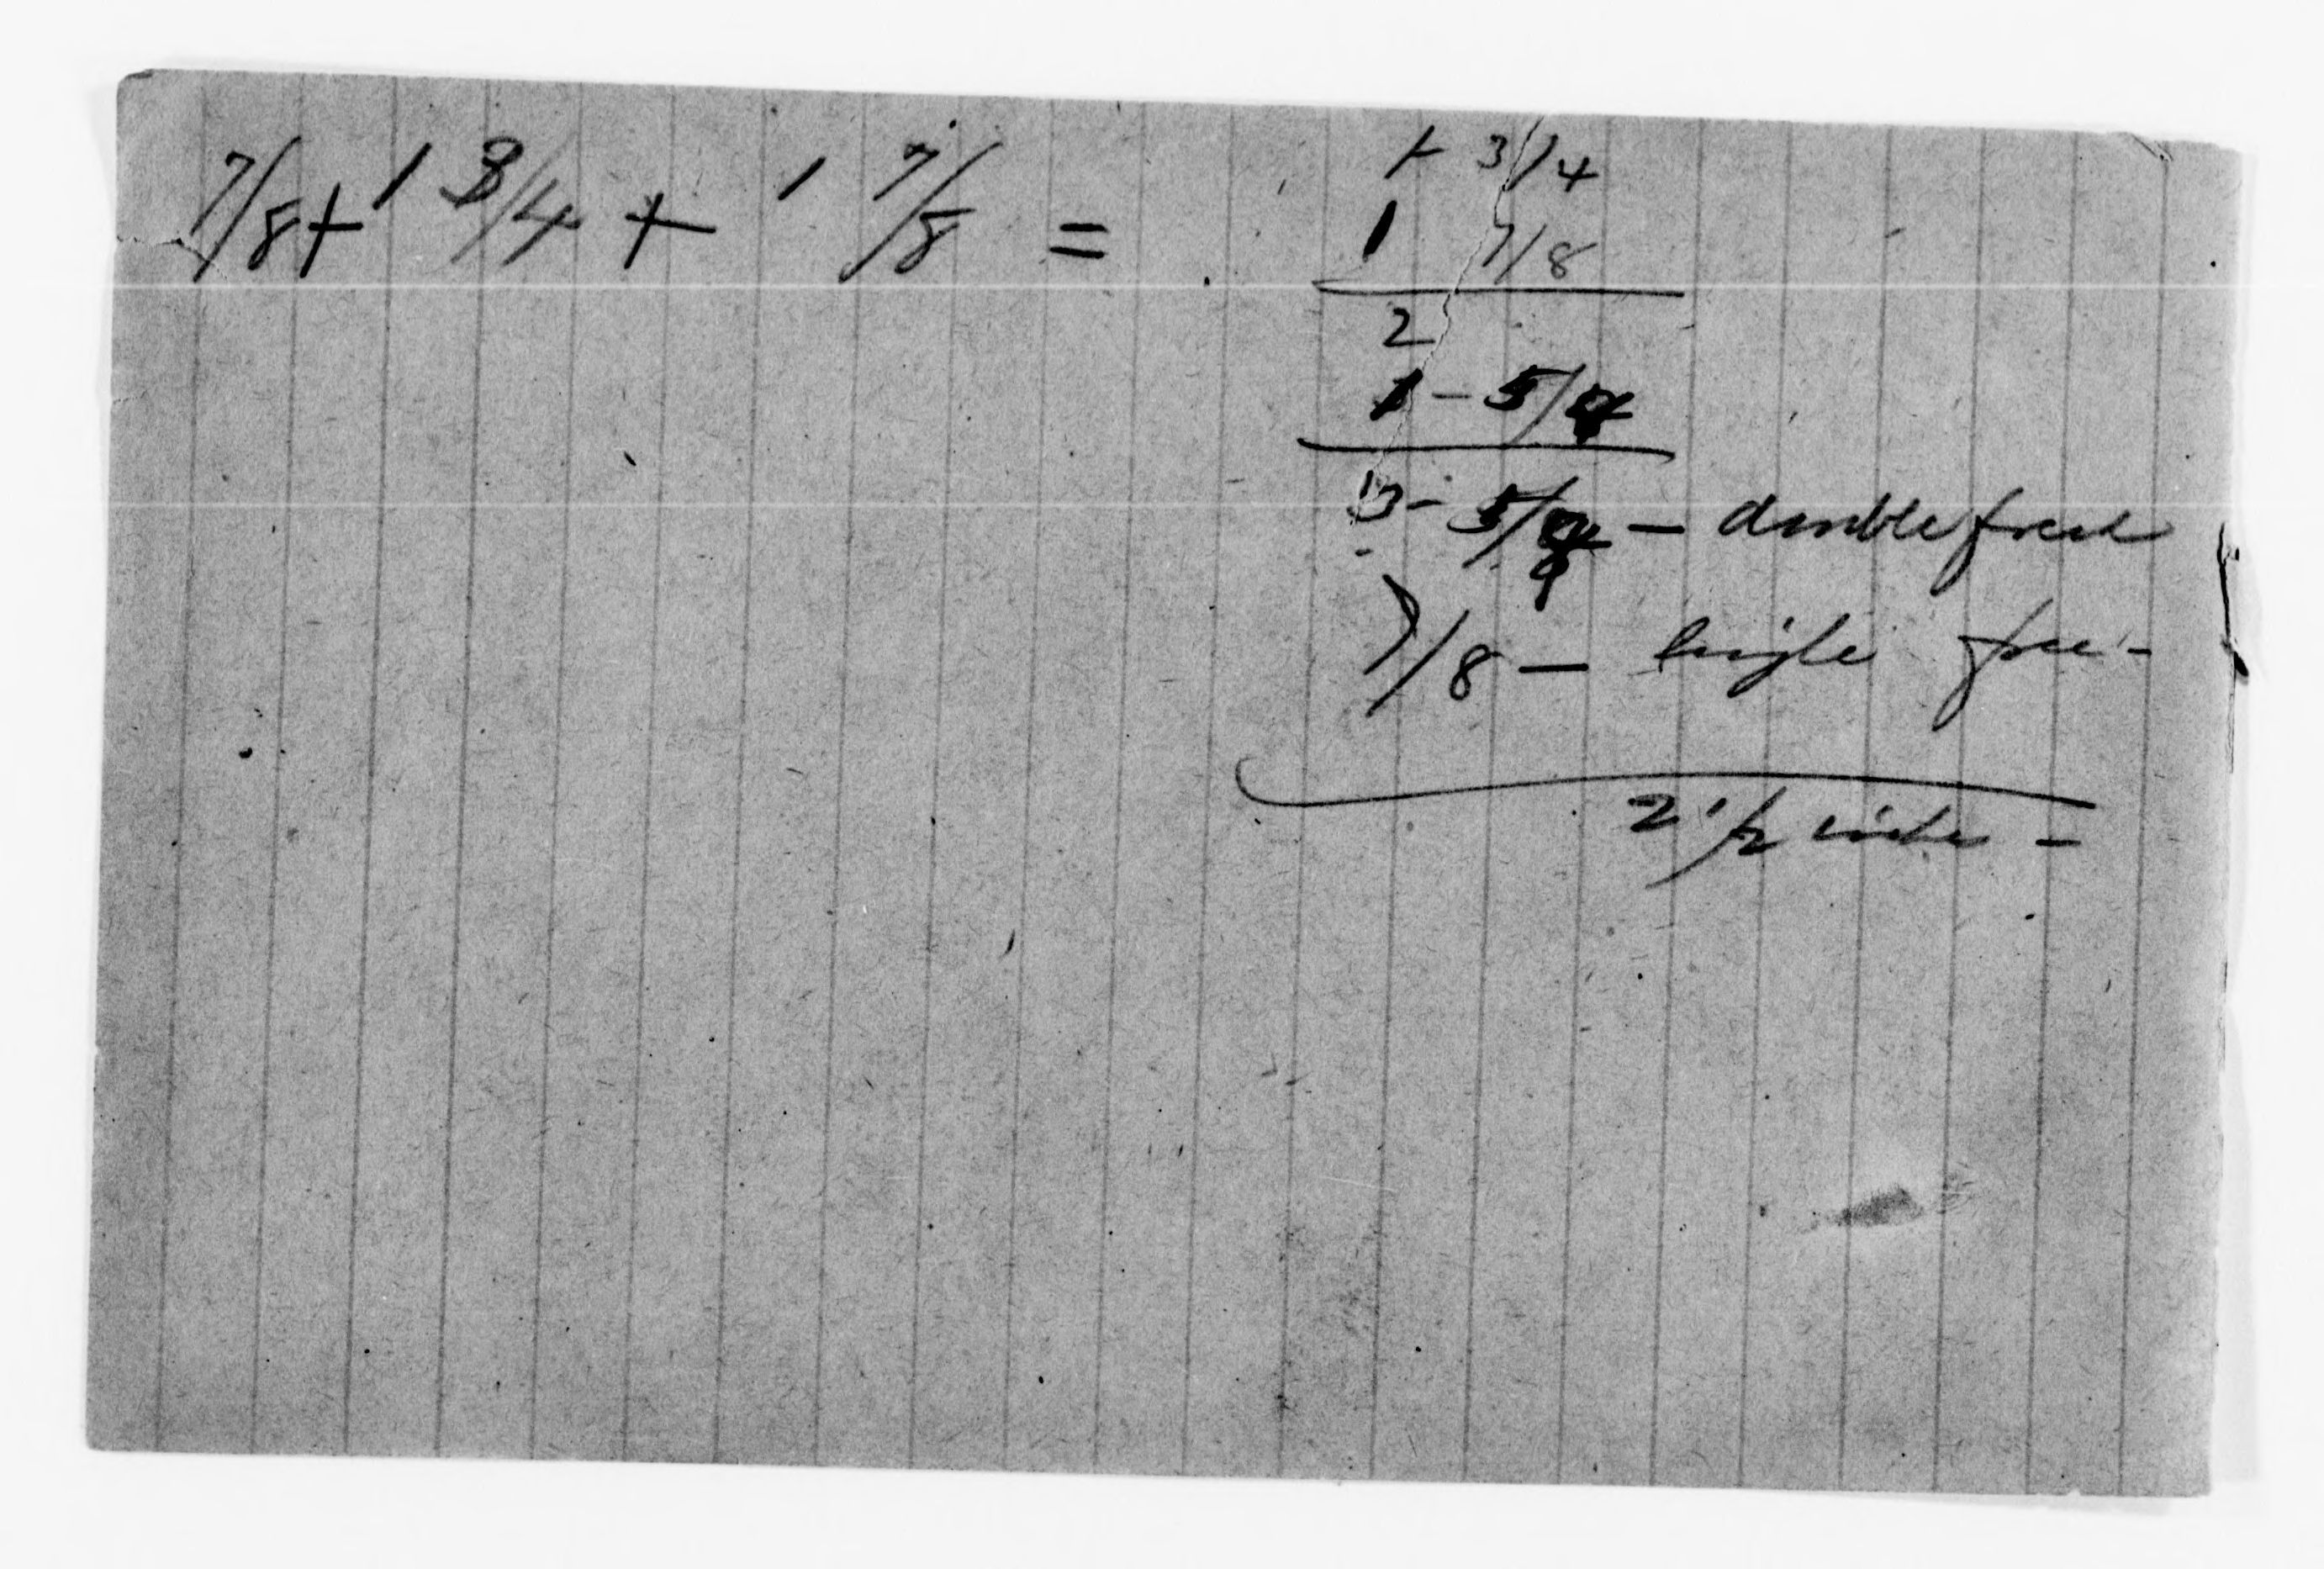 7/8 + 1 3/4 + 1 7/8 =
1 - 3/4
1 7/8
2
1 - 5/8
3 - 5/8 - double
7/8 - single free -
2 1/2 wide -